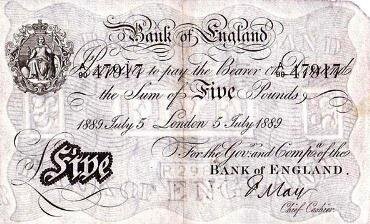 Bank of England
47917 to pay the Bearer on Demand 47917
the Sum of Five Pounds
1889 July 5 London 5 July 1889
For the Govr. and Compa. of the
BANK OF ENGLAND.
Five
F May
Chief Cashier.